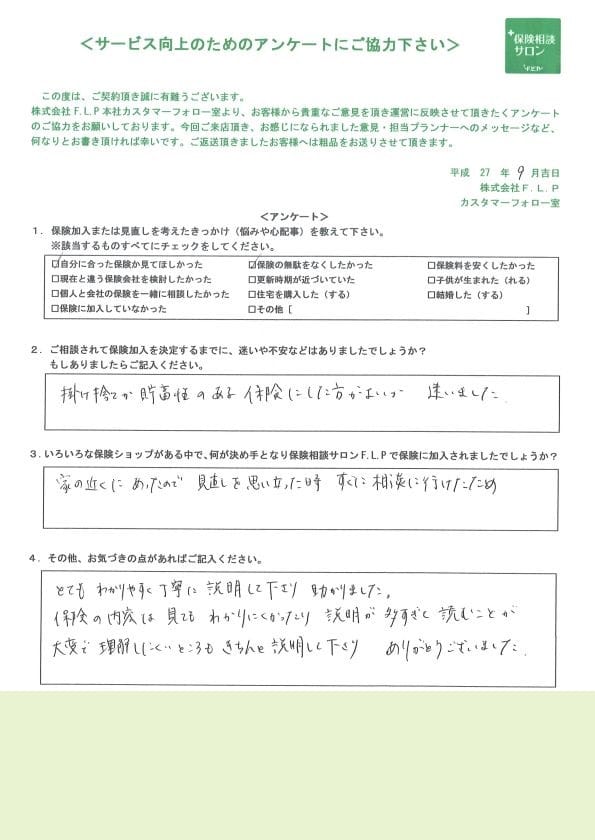 ＜サービス向上のためのアンケートにご協力下さい＞
保険相談
サロン
この度は、ご契約頂き誠に有難うございます。
株式会社Ｆ.Ｌ.Ｐ本社カスタマーフォロー室より、お客様から貴重なご意見を頂き運営に反映させて頂きたくアンケート
のご協力をお願いしております。今回ご来店頂き、お感じになられました意見・担当プランナーへのメッセージなど、
何なりとお書き頂ければ幸いです。ご返送頂きましたお客様へは粗品をお送りさせて頂きます。
平成 27 年 9 月吉日
株式会社Ｆ.Ｌ.Ｐ
カスタマーフォロー室
＜アンケート＞
１．保険加入または見直しを考えたきっかけ（悩みや心配事）を教えて下さい。
※該当するものすべてにチェックをしてください。
☑自分に合った保険か見てほしかった ☑保険の無駄をなくしたかった □保険料を安くしたかった
□現在と違う保険会社を検討したかった □更新時期が近づいていた □子供が生まれた（れる）
□個人と会社の保険を一緒に相談したかった □住宅を購入した（する） □結婚した（する）
□保険に加入していなかった □その他［ ］
２．ご相談されて保険加入を決定するまでに、迷いや不安などはありましたでしょうか？
もしありましたらご記入ください。
掛け捨てか 貯蓄性のある 保険にした方がよいか 迷いました。
３．いろいろな保険ショップがある中で、何が決め手となり保険相談サロンＦ.Ｌ.Ｐで保険に加入されましたでしょうか？
家の近くに あったので 見直しを思い立った時 すぐに相談に行けたため
４．その他、お気づきの点があればご記入ください。
とても わかりやすく丁寧に 説明して下さり 助かりました。
保険の内容は 見ても わかりにくかったり 説明が 多すぎて 読むことが
大変で 理解しにくいところも きちんと 説明して下さり ありがとうございました。